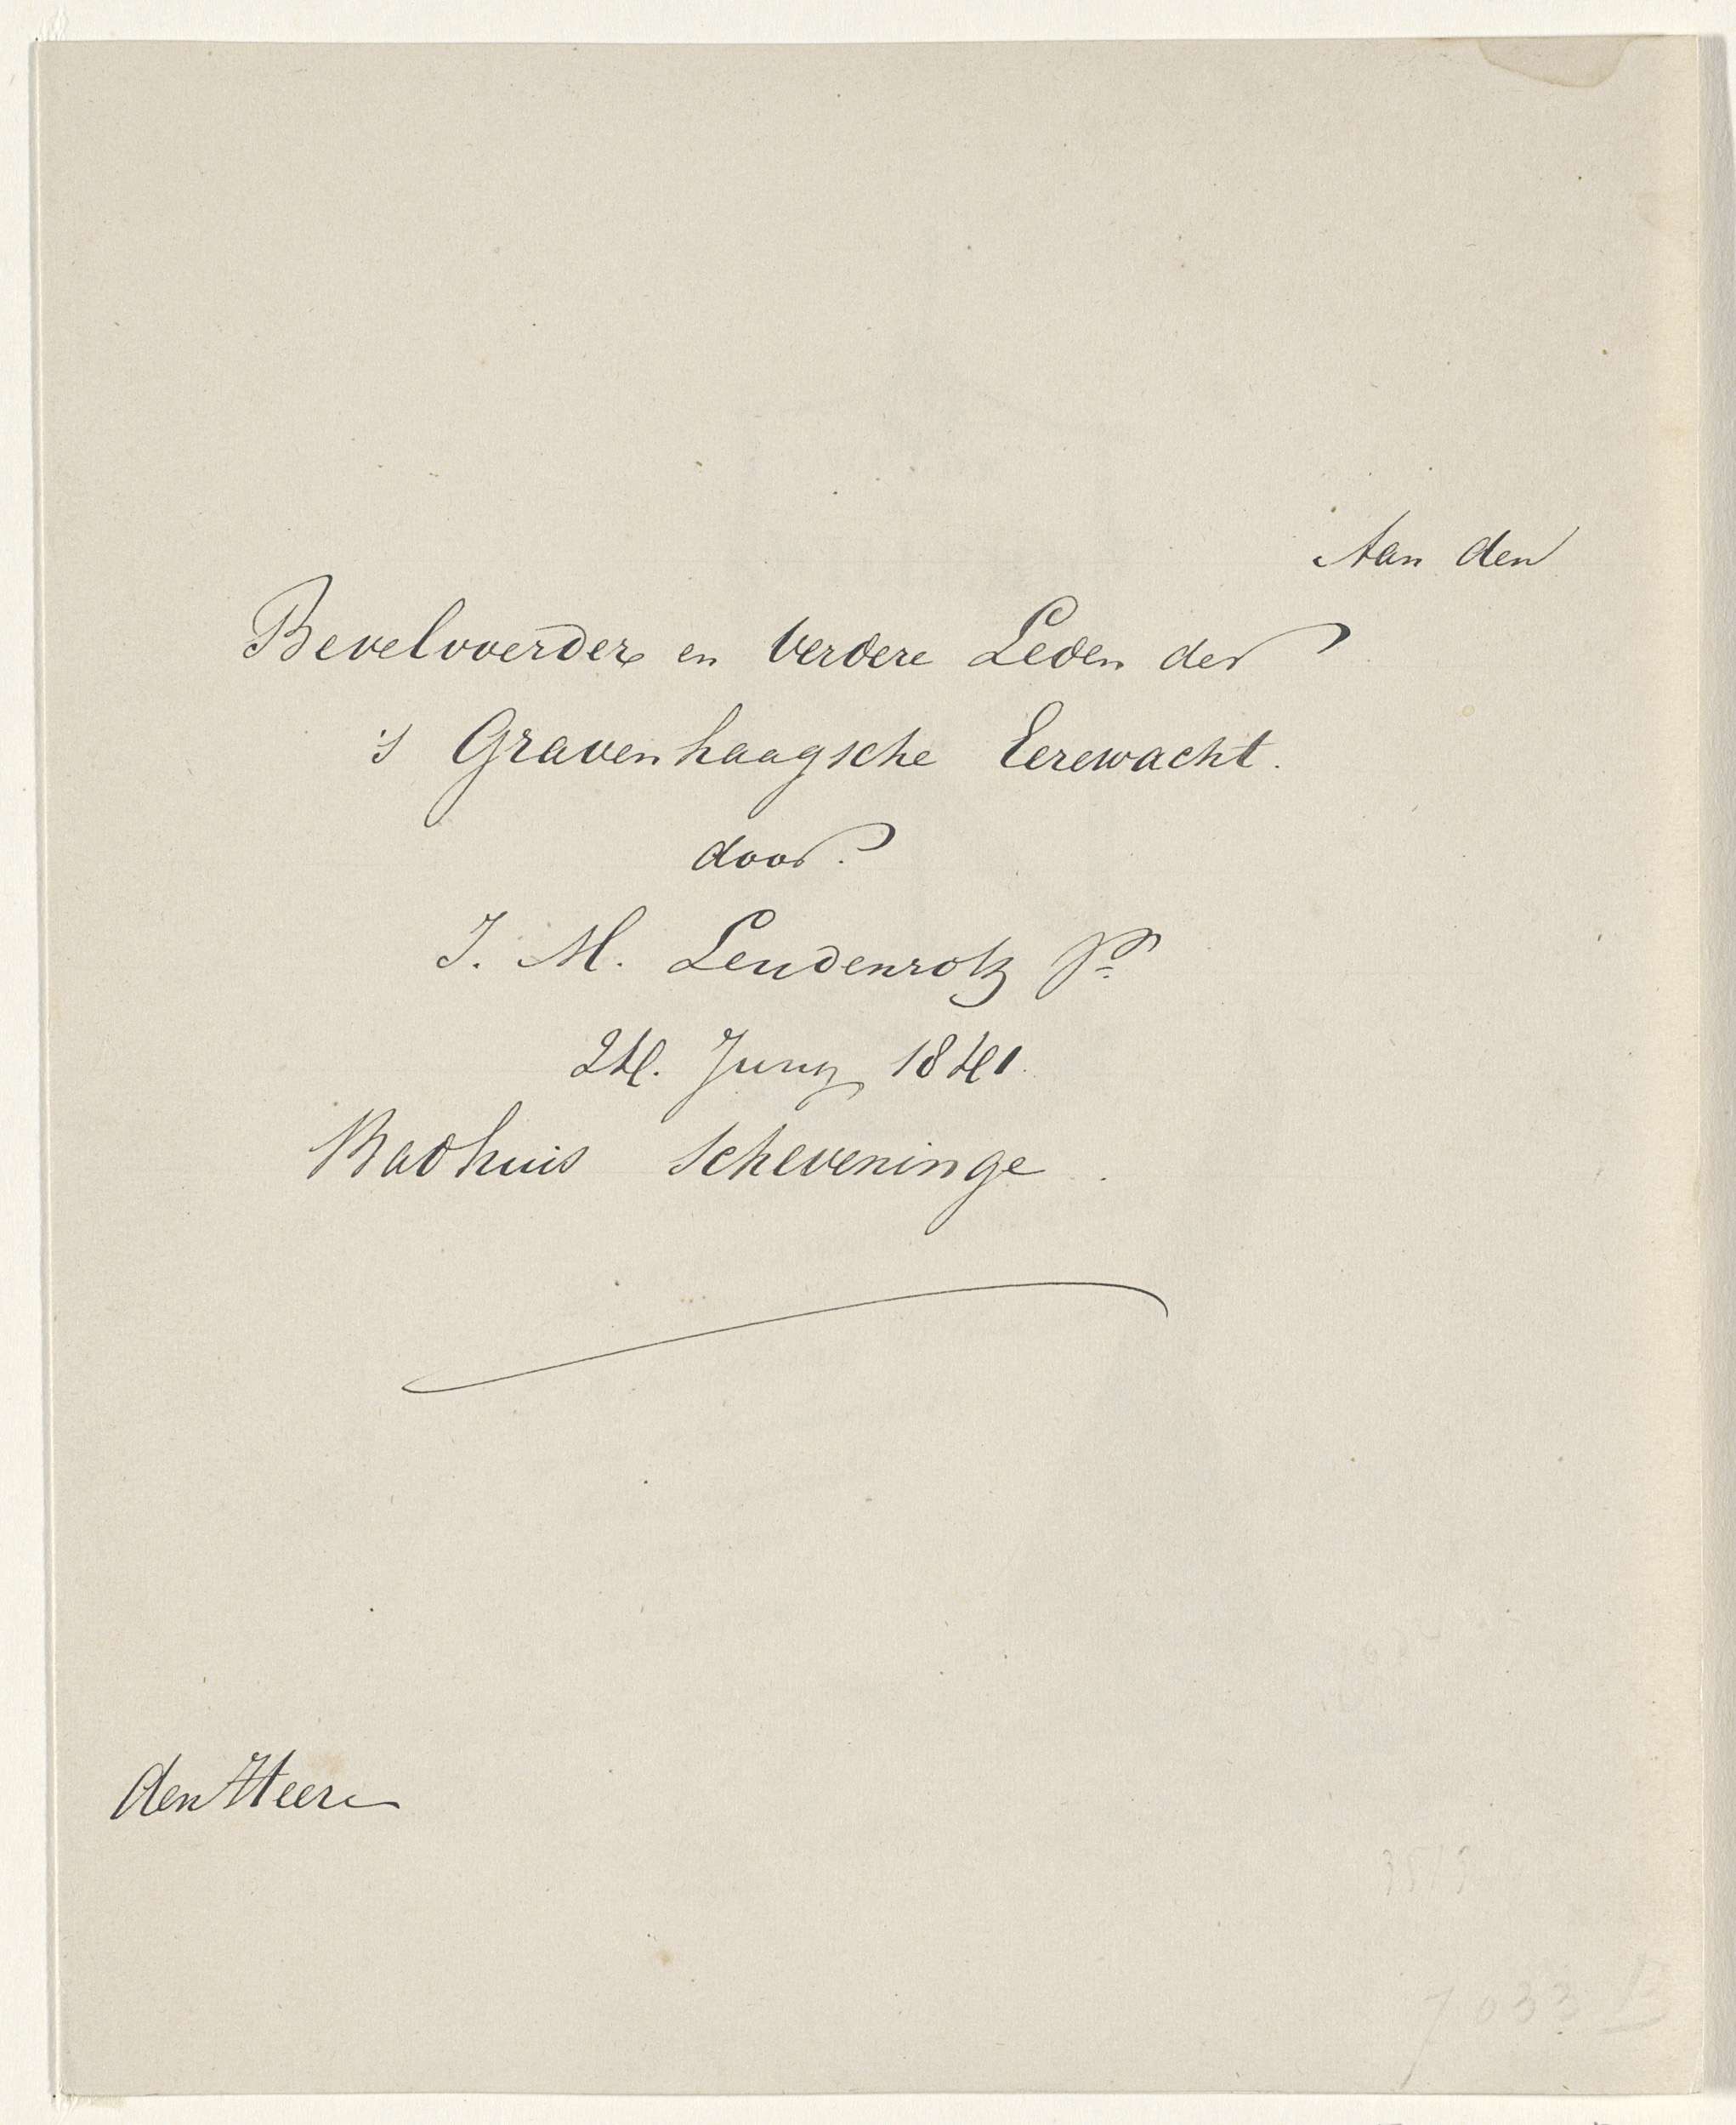 Aan den
Bevelvoerder en Verdere Leden der
's Gravenhaagsche Eerewacht.
door.
J. M. Leudenrotz Jr
24. Juny 1841.
Badhuis Scheveninge.
den Heere
7033 B